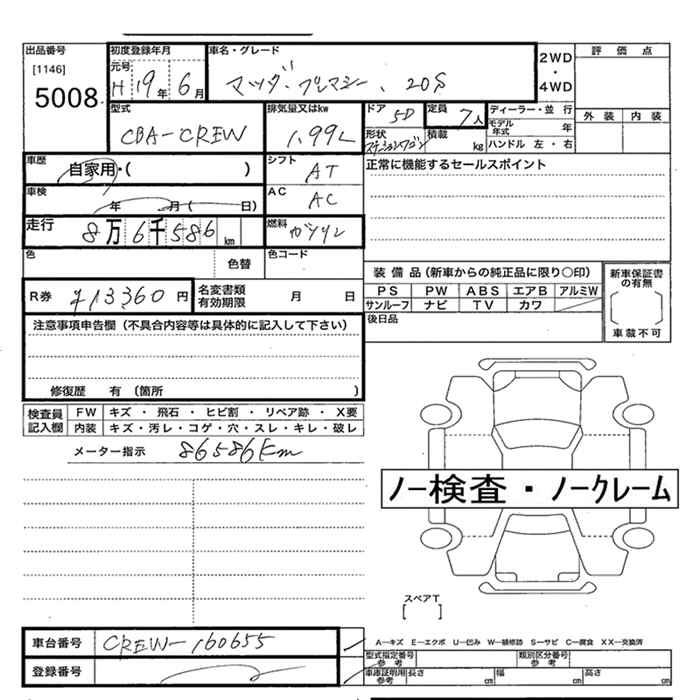 出品番号 初度登録年月 車名・グレード
[1146] 元号
5008 H 19年 6月 マツダ・プレマシー、20S
2WD・4WD
評価点
型式 排気量又はkw ドア 5D 定員 7人 ディーラー・並行
外装 内装
CBA-CREW 1.99L
モデル年式 年
形状 ステーションワゴン 積載 kg ハンドル 左・右
車歴 自家用・( ) シフト AT
正常に機能するセールスポイント
車検 年 月 ( 日) AC AC
走行 8万6千586km 燃料 ガソリン
色 色替 色コード
装備品(新車からの純正品に限り○印) 新車保証書の有無
R券 ¥13360円 名変書類有効期限 月 日
PS PW ABS エアB アルミW
サンルーフ ナビ TV カワ
車載不可
注意事項申告欄(不具合内容等は具体的に記入して下さい) 後日品
修復歴 有 (箇所 )
検査員記入欄 FW キズ ・ 飛石 ・ ヒビ割 ・ リペア跡 ・ X要
内装 キズ・汚レ・コゲ・穴・スレ・キレ・破レ
メーター指示 86586Km
ノー検査・ノークレーム
スペアT
[ ]
車台番号 CREW-160655
A−キズ E−エクボ U−凹み W−補修跡 S−サビ C−腐食 XX−交換済
登録番号
型式指定番号 参考 類別区分番号 参考
車庫証明用 参考 長さ cm 幅 cm 高さ cm